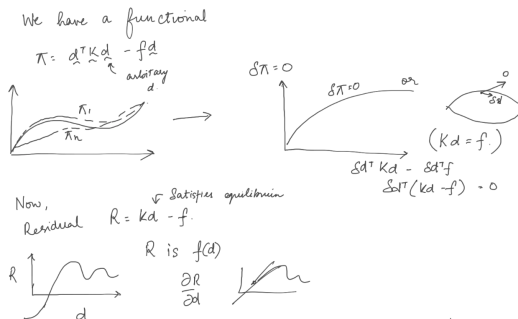 We have a functional
π = dᵀKd - fd
arbitary
d.
π₁
πn
δπ = 0
δπ=0
or
0
δd
(Kd = f.)
δdᵀ Kd - δdᵀf
δdᵀ(Kd - f) = 0
Now,
Satisfies equilibrium
Residual R = Kd - f.
R is f(d)
R
d
∂R
∂d